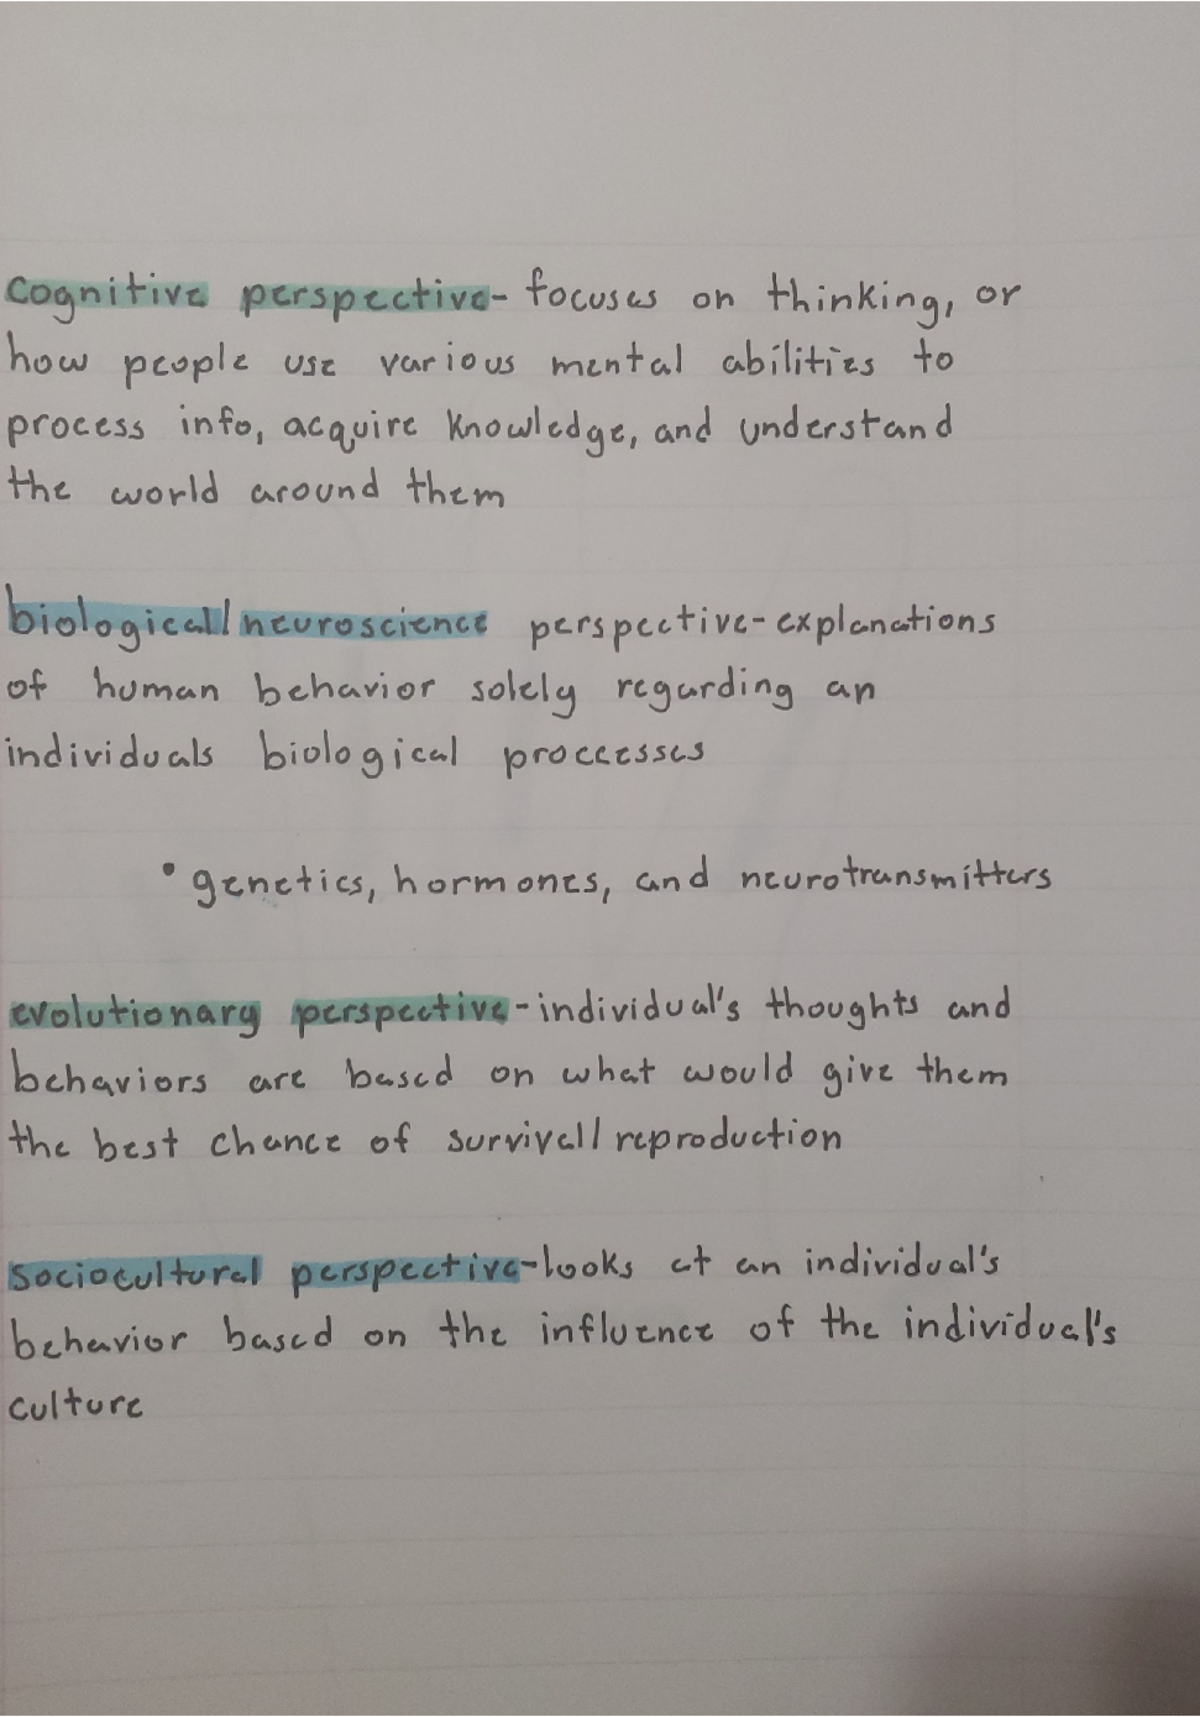 cognitive perspective- focuses on thinking, or
how people use various mental abilities to
process info, acquire knowledge, and understand
the world around them
biological/neuroscience perspective-explanations
of human behavior solely regarding an
individuals biological processes
• genetics, hormones, and neurotransmitters
evolutionary perspective-individual's thoughts and
behaviors are based on what would give them
the best chance of survival/reproduction
sociocultural perspective-looks at an individual's
behavior based on the influence of the individual's
culture